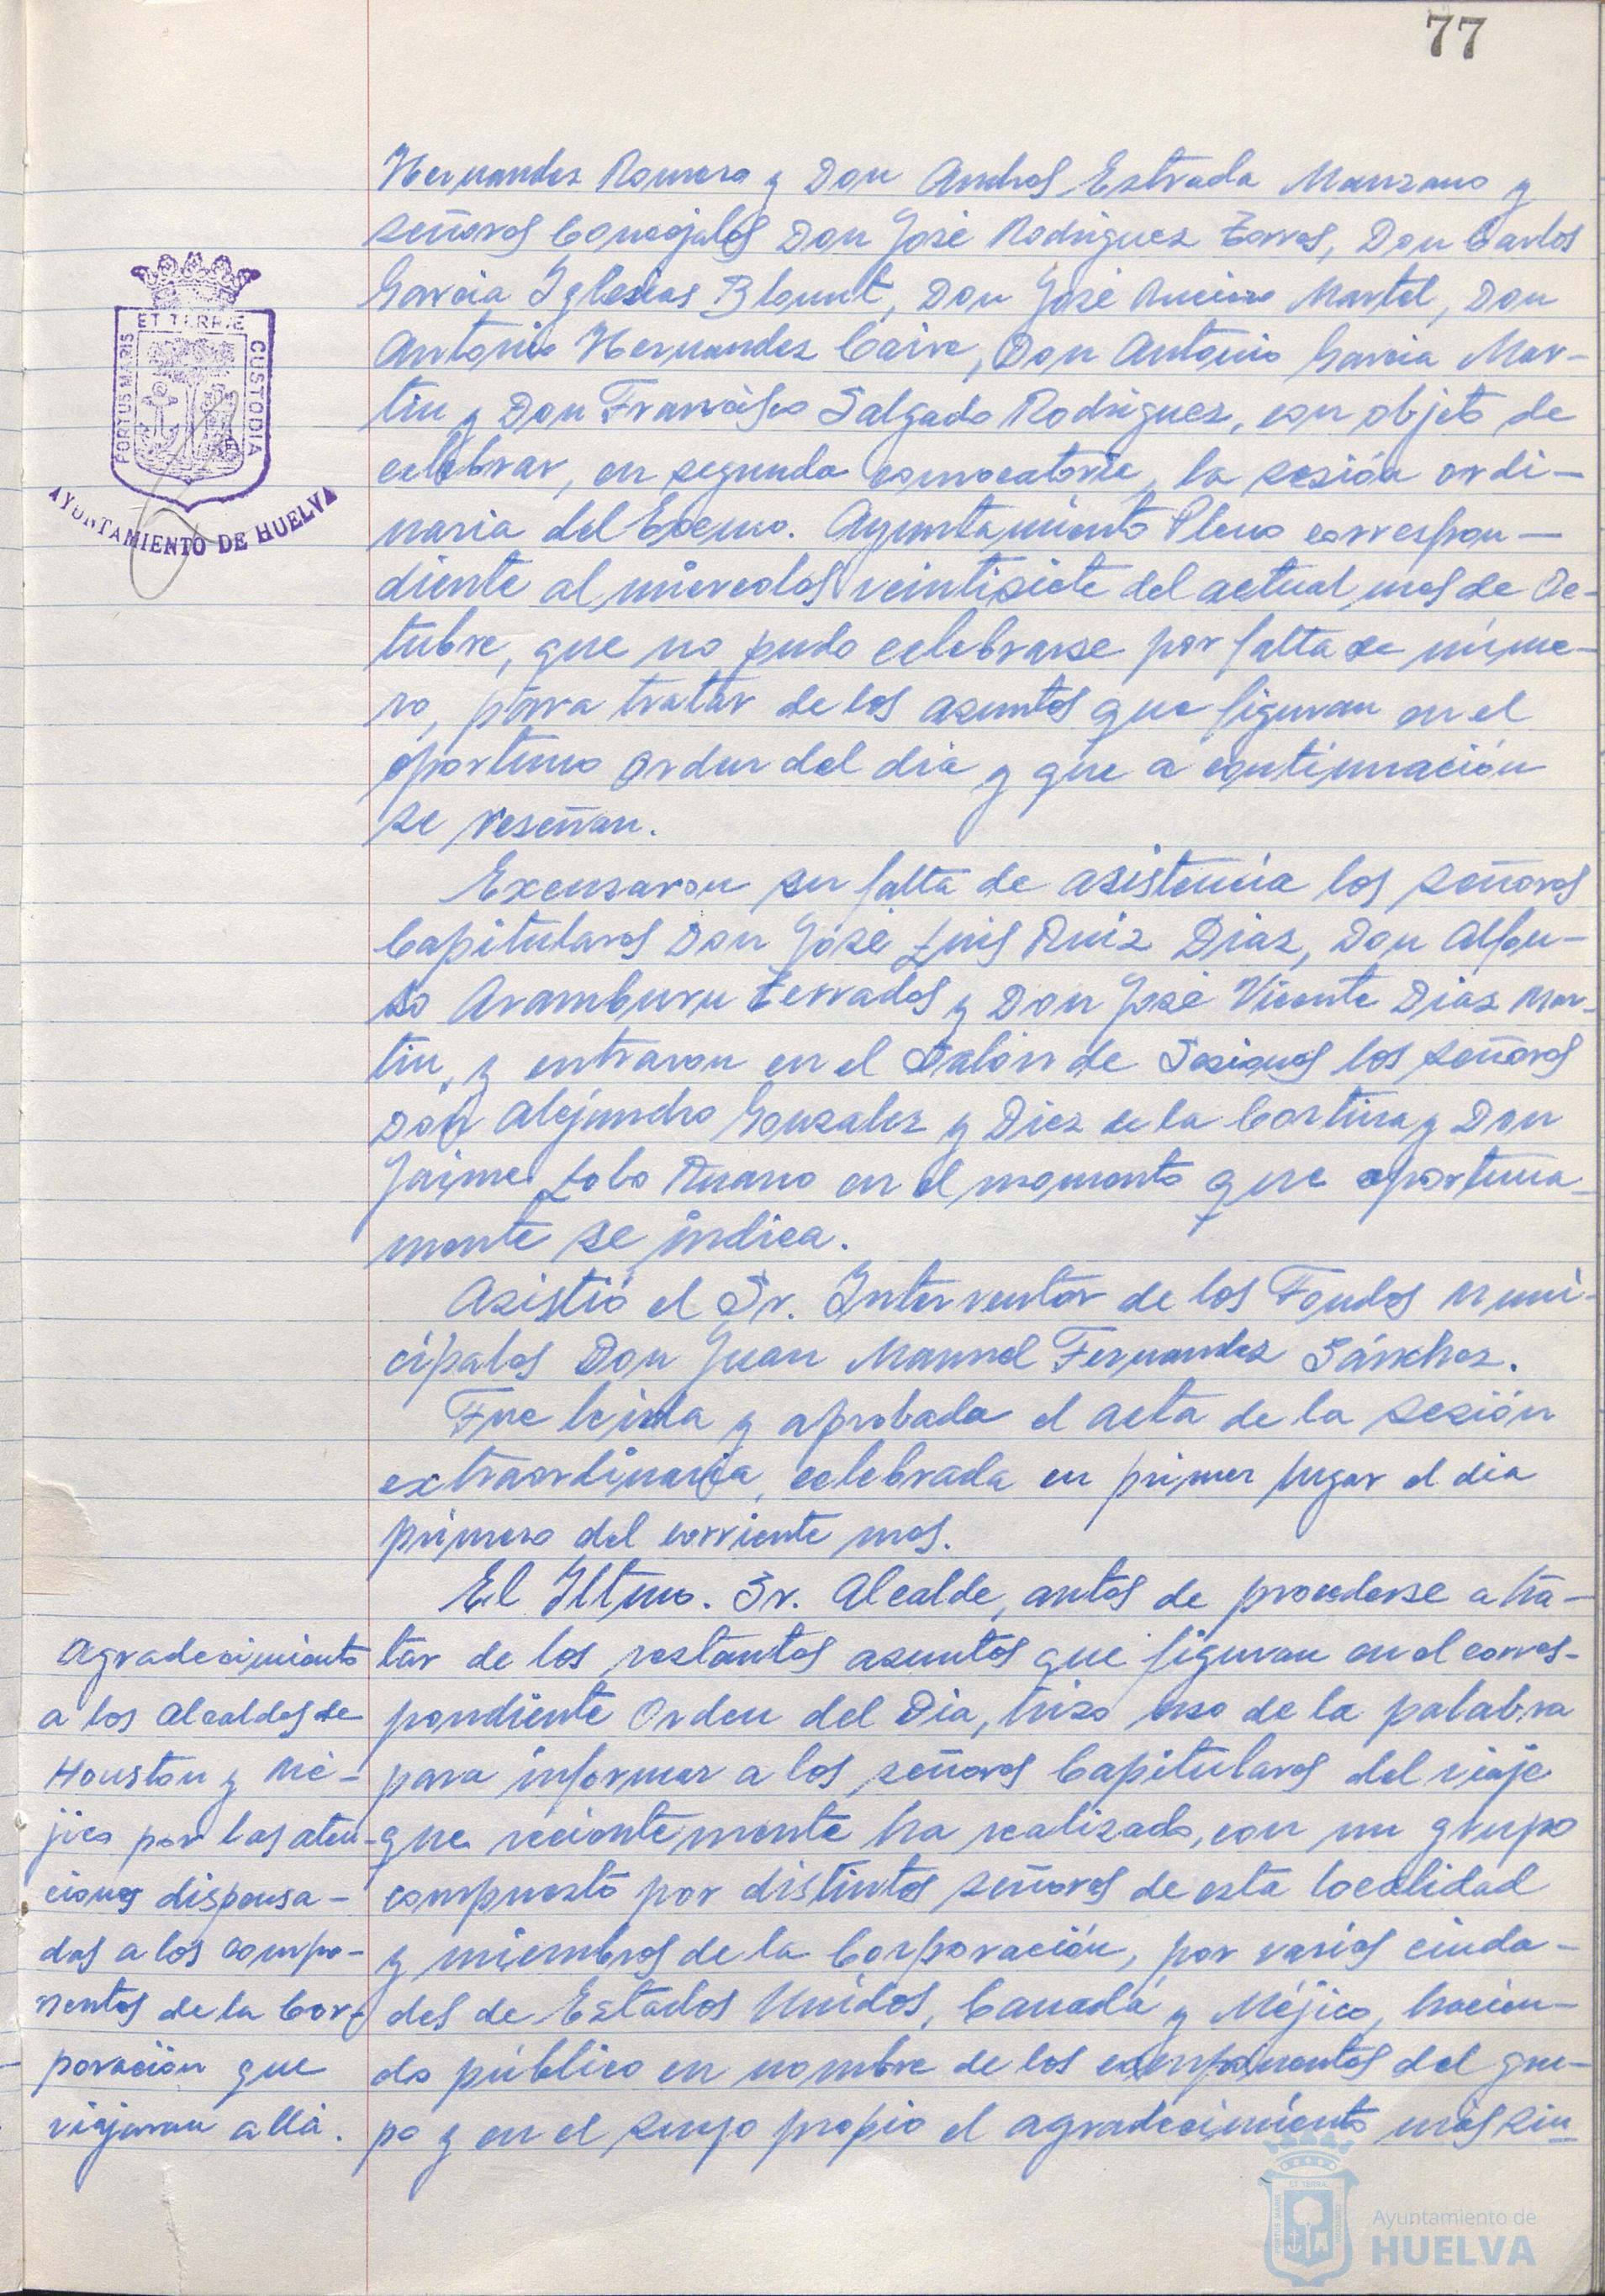 77
Hernandez Romero y Don Andres Estrada Manzano y
señores Concejales Don José Rodriguez Torres, Don Carlos
Garcia Iglesias Blount, Don José Rucino Martel, Don
Antonio Hernandez Caire, Don Antonio Garcia Mar-
tin y Don Francisco Salgado Rodriguez, con objeto de
celebrar, en segunda convocatoria, la sesión ordi-
naria del Excmo. Ayuntamiento Pleno correspon-
diente al miercoles veintisiete del actual mes de Oc-
tubre, que no pudo celebrarse por falta de núme-
ro, para tratar de los asuntos que figuran en el
oportuno orden del dia y que a continuación
se reseñan.
Excusaron su falta de asistencia los señores
Capitulares Don José Luis Ruiz Diaz, Don Alfon-
so Aramburu Terrados y Don José Vicente Diaz Mar-
tin, y entraron en el Salón de Sesiones los señores
Don Alejandro Gonzalez y Diez de la Cortina y Don
Jaime Lobo Ruano en el momento que oportuna-
mente se indica.
Asistió el Sr. Interventor de los Fondos Muni-
cipales Don Juan Manuel Fernandez Sánchez.
Fue leida y aprobada el acta de la sesión
extraordinaria, celebrada en primer lugar el dia
primero del corriente mes.
El Iltmo. Sr. Alcalde, antes de procederse a tra-
tar de los restantes asuntos que figuran en el corres-
pondiente Orden del Dia, hizo uso de la palabra
para informar a los señores Capitulares del viaje
que recientemente ha realizado, con un grupo
compuesto por distintos señores de esta localidad
y miembros de la Corporación, por varias ciuda-
des de Estados Unidos, Canadá y Méjico, hacien-
do público en nombre de los componentes del gru-
po y en el suyo propio el agradecimiento más sin-
Agradecimiento
a los Alcaldes de
Houston y Mé-
jico por las aten-
ciones dispensa-
das a los compo-
nentes de la Cor-
poración que
viajaron allá.
PORTUS MARIS
ET TERRAE
CUSTODIA
AYUNTAMIENTO DE HUELVA
Ayuntamiento de
HUELVA